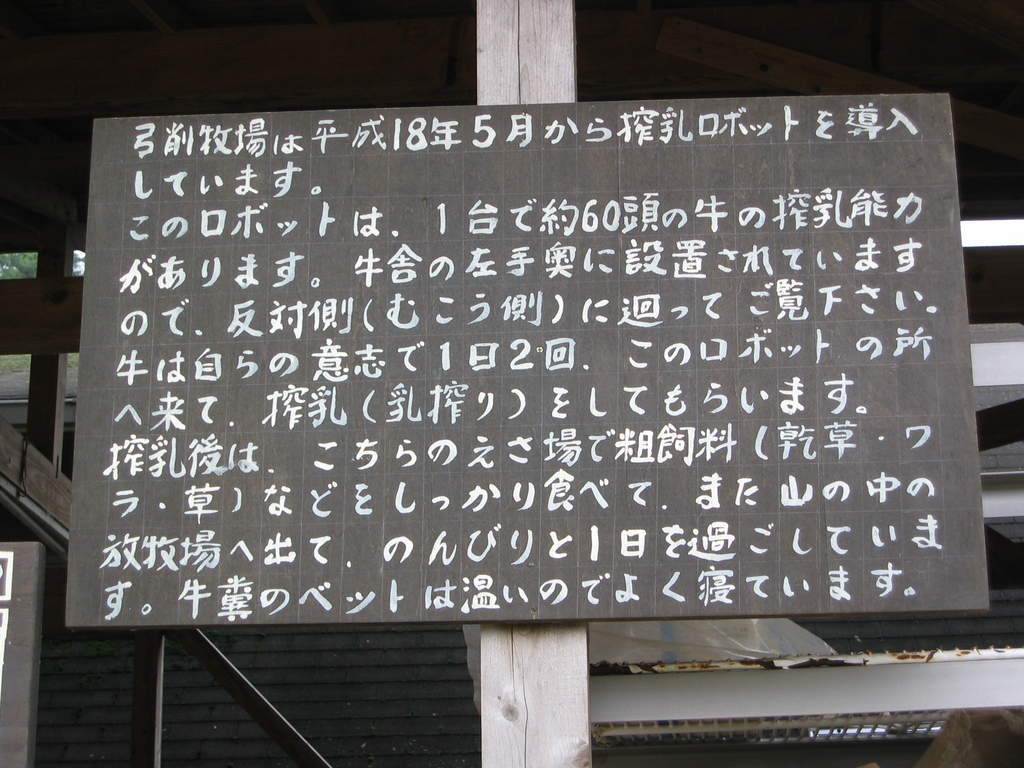 弓削牧場は平成18年5月から搾乳ロボットを導入
しています。
このロボットは、1台で約60頭の牛の搾乳能力
があります。牛舎の左手奥に設置されています
ので、反対側(むこう側)に廻ってご覧下さい。
牛は自らの意志で1日2回、このロボットの所
へ来て、搾乳(乳搾り)をしてもらいます。
搾乳後は、こちらのえさ場で粗飼料(乾草・ワ
ラ・草)などをしっかり食べて、また山の中の
放牧場へ出て、のんびりと1日を過ごしていま
す。牛糞のベットは温いのでよく寝ています。